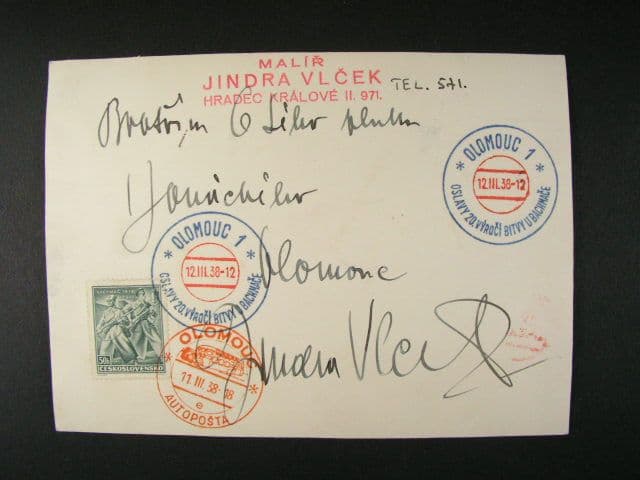 MALÍŘ
JINDRA VLČEK
HRADEC KRÁLOVÉ II. 971.
TEL. 571.
Bratřím
pluku
* OLOMOUC 1 *
12.III.38-12
OSLAVY 20. VÝROČÍ BITVY U BACHMAČE
* OLOMOUC 1 *
12.III.38-12
OSLAVY 20. VÝROČÍ BITVY U BACHMAČE
Olomouc
BACHMAČ 1918
50h
ČESKOSLOVENSKO
OLOMOUC
11.III.38-18
e
* AUTOPOŠTA *
Jindra Vlček